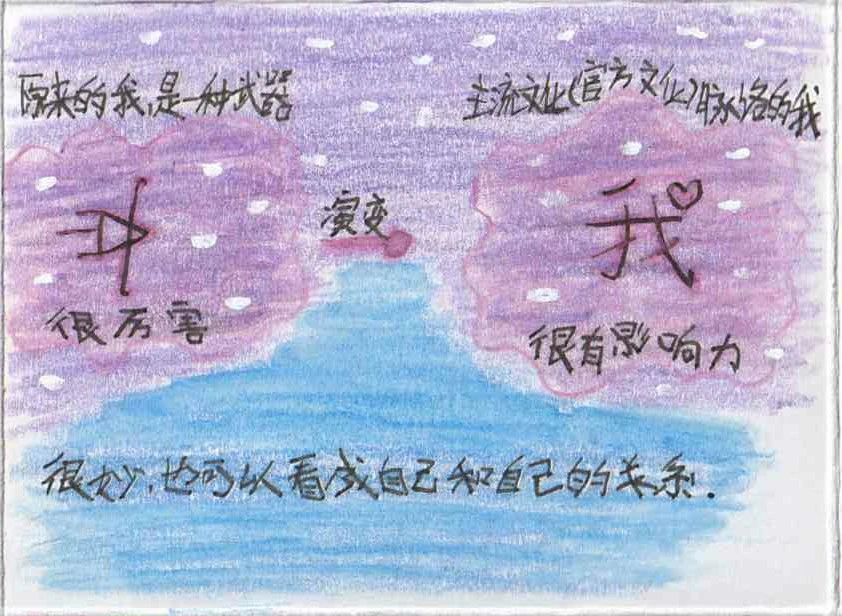 原来的我,是一种武器
主流文化(官方文化)脉络的我
演变
我
很厉害
很有影响力
很妙,也可以看成自己和自己的关系.